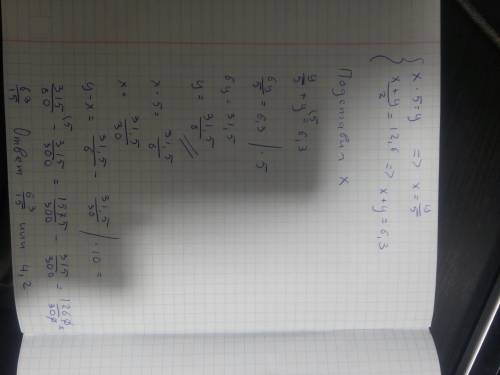 { x · 5 = y => x = y/5
(x+y)/2 = 12,6 => x+y = 6,3
Подставим x
y/5 + y = 6,3
6y/5 = 6,3 | · 5
6y = 31,5
y = 31,5/6
x · 5 = 31,5/6
x = 31,5/30
y - x = 31,5/6 - 31,5/30 | · 10 =
315/60 - 315/300 = 1575/300 - 315/300 = 1260/300
63/15 Ответ 63/15 или 4,2